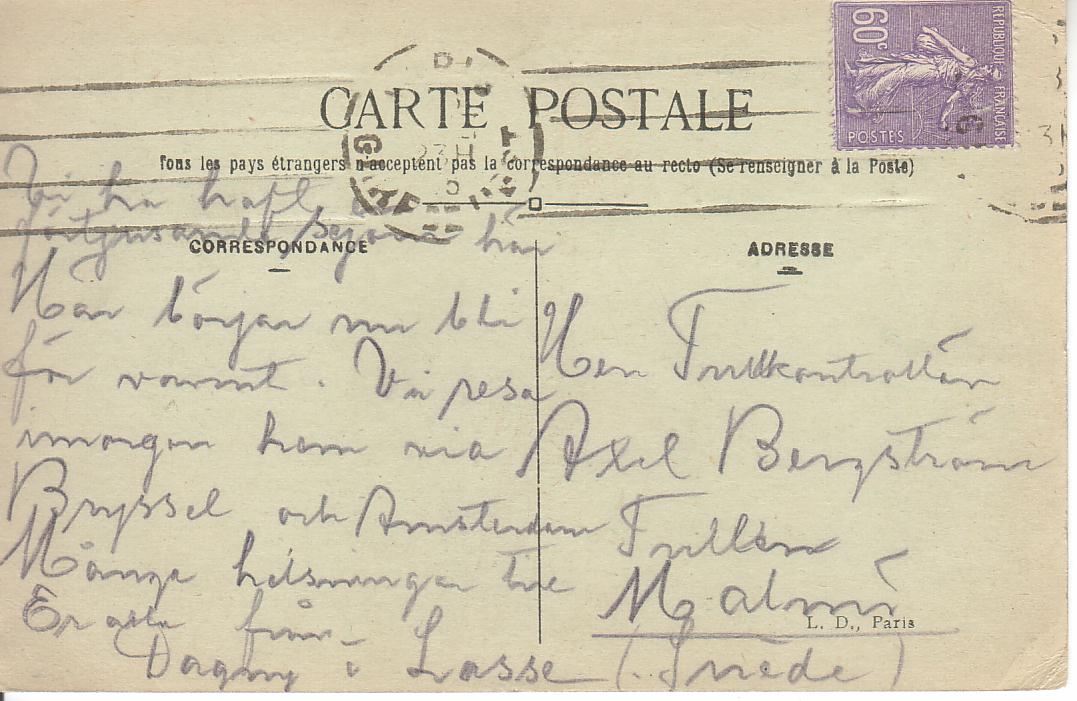 60c
RÉPUBLIQUE FRANÇAISE
POSTES
CARTE POSTALE
Tous les pays étrangers n'acceptent pas la correspondance au recto (Se renseigner à la Poste)
23H
CORRESPONDANCE
Vi ha haft
förtjusande här
Här börjar nu bli
för varmt. Vi resa
imorgon hem via
Bryssel och Amsterdam
Många hälsningar till
Er alla från
Dagny & Lasse
ADRESSE
Herr Tullkontrollör
Axel Bergström
Tullen
Malmö
L. D., Paris
(Suède)